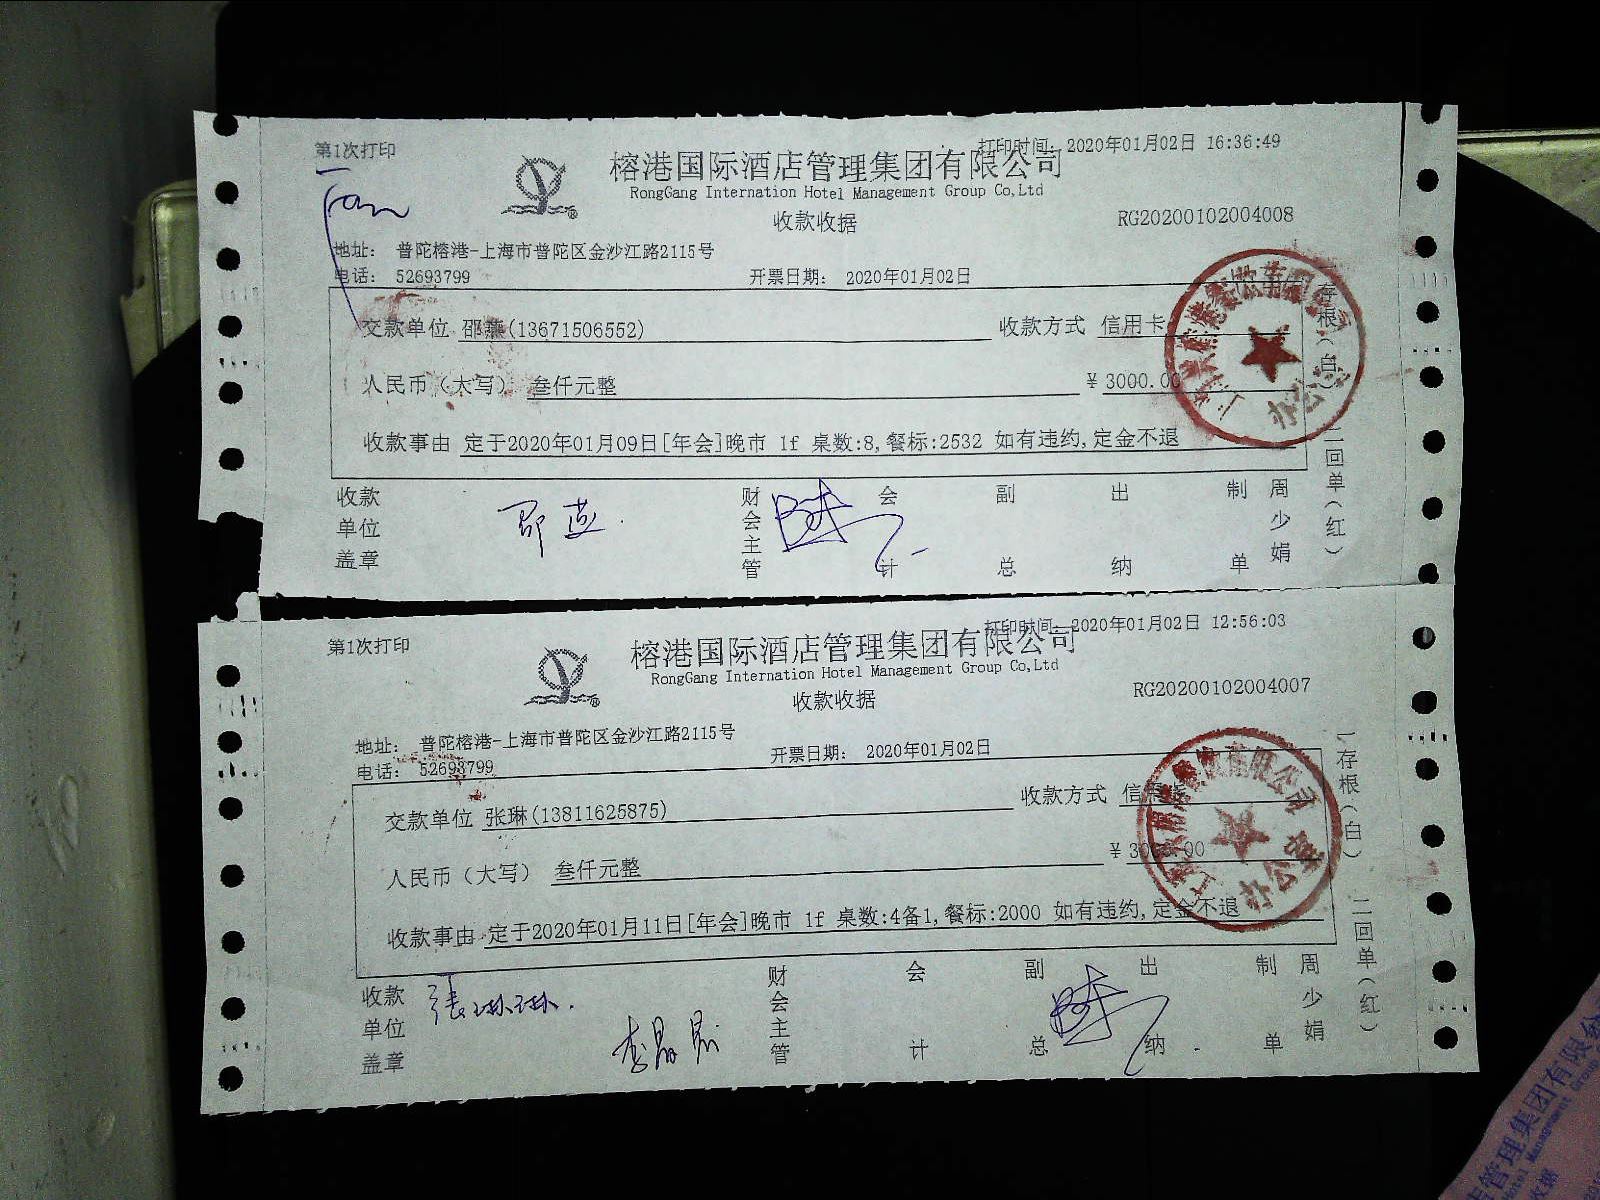 第1次打印
打印时间: 2020年01月02日 16:36:49
榕港国际酒店管理集团有限公司
RongGang Internation Hotel Management Group Co,Ltd
收款收据
RG20200102004008
地址: 普陀榕港-上海市普陀区金沙江路2115号
电话: 52693799
开票日期: 2020年01月02日
交款单位 邵燕(13671506552)
收款方式 信用卡
人民币(大写) 叁仟元整
¥ 3000.00
收款事由 定于2020年01月09日[年会]晚市 1f 桌数:8,餐标:2532 如有违约,定金不退
存根(白) 二回单(红)
收款单位盖章
邵燕
财会主管
会计
副总
出纳
制单
周少娟
第1次打印
打印时间: 2020年01月02日 12:56:03
榕港国际酒店管理集团有限公司
RongGang Internation Hotel Management Group Co,Ltd
收款收据
RG20200102004007
地址: 普陀榕港-上海市普陀区金沙江路2115号
电话: 52693799
开票日期: 2020年01月02日
交款单位 张琳(13811625875)
收款方式 信用卡
人民币(大写) 叁仟元整
¥ 3000.00
收款事由 定于2020年01月11日[年会]晚市 1f 桌数:4备1,餐标:2000 如有违约,定金不退
一存根(白) 二回单(红)
收款单位盖章
張琳琳
财会主管
会计
副总
出纳
制单
周少娟
管理集团有限